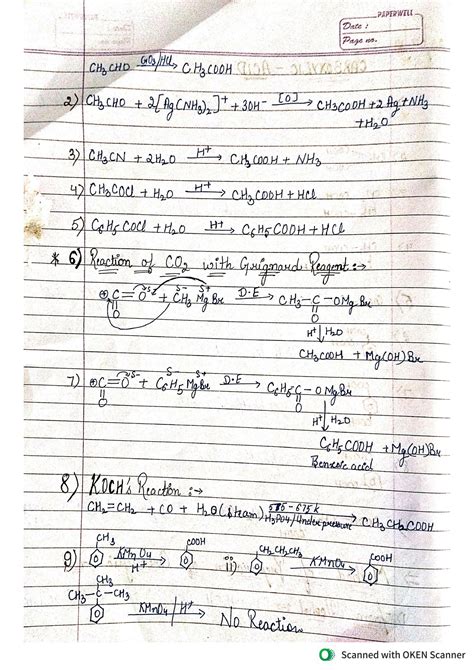 PAPERWELL
Date :
Page no.
CH3CHO CrO3/HCl → CH3COOH
2) CH3CHO + 2[Ag(NH3)2]+ + 3OH- [O] → CH3COOH + 2Ag + NH3
+ H2O
3) CH3CN + 2H2O H+ → CH3COOH + NH3
4) CH3COCl + H2O H+ → CH3COOH + HCl
5) C6H5COCl + H2O H+ → C6H5COOH + HCl
* 6) Reaction of CO2 with Grignard Reagent :→
⊕C=O δ- + CH3 δ- MgBr δ+ D.E → CH3-C-OMgBr
O O
H+ ↓ H2O
CH3COOH + Mg(OH)Br
7) ⊕C=O δ- + C6H5 δ- MgBr δ+ D.E → C6H5C-OMgBr
O O
H+ ↓ H2O
C6H5COOH + Mg(OH)Br
Benzoic acid
8) KOCH's Reaction :→
CH2=CH2 + CO + H2O (steam) 575-675K H3PO4/Under pressure → CH3CH2COOH
9) CH3 KMnO4 H+ → COOH ii) CH2CH2CH3 KMnO4 → COOH
CH3
CH3-C-CH3 KMnO4/H+ → No Reaction
Scanned with OKEN Scanner